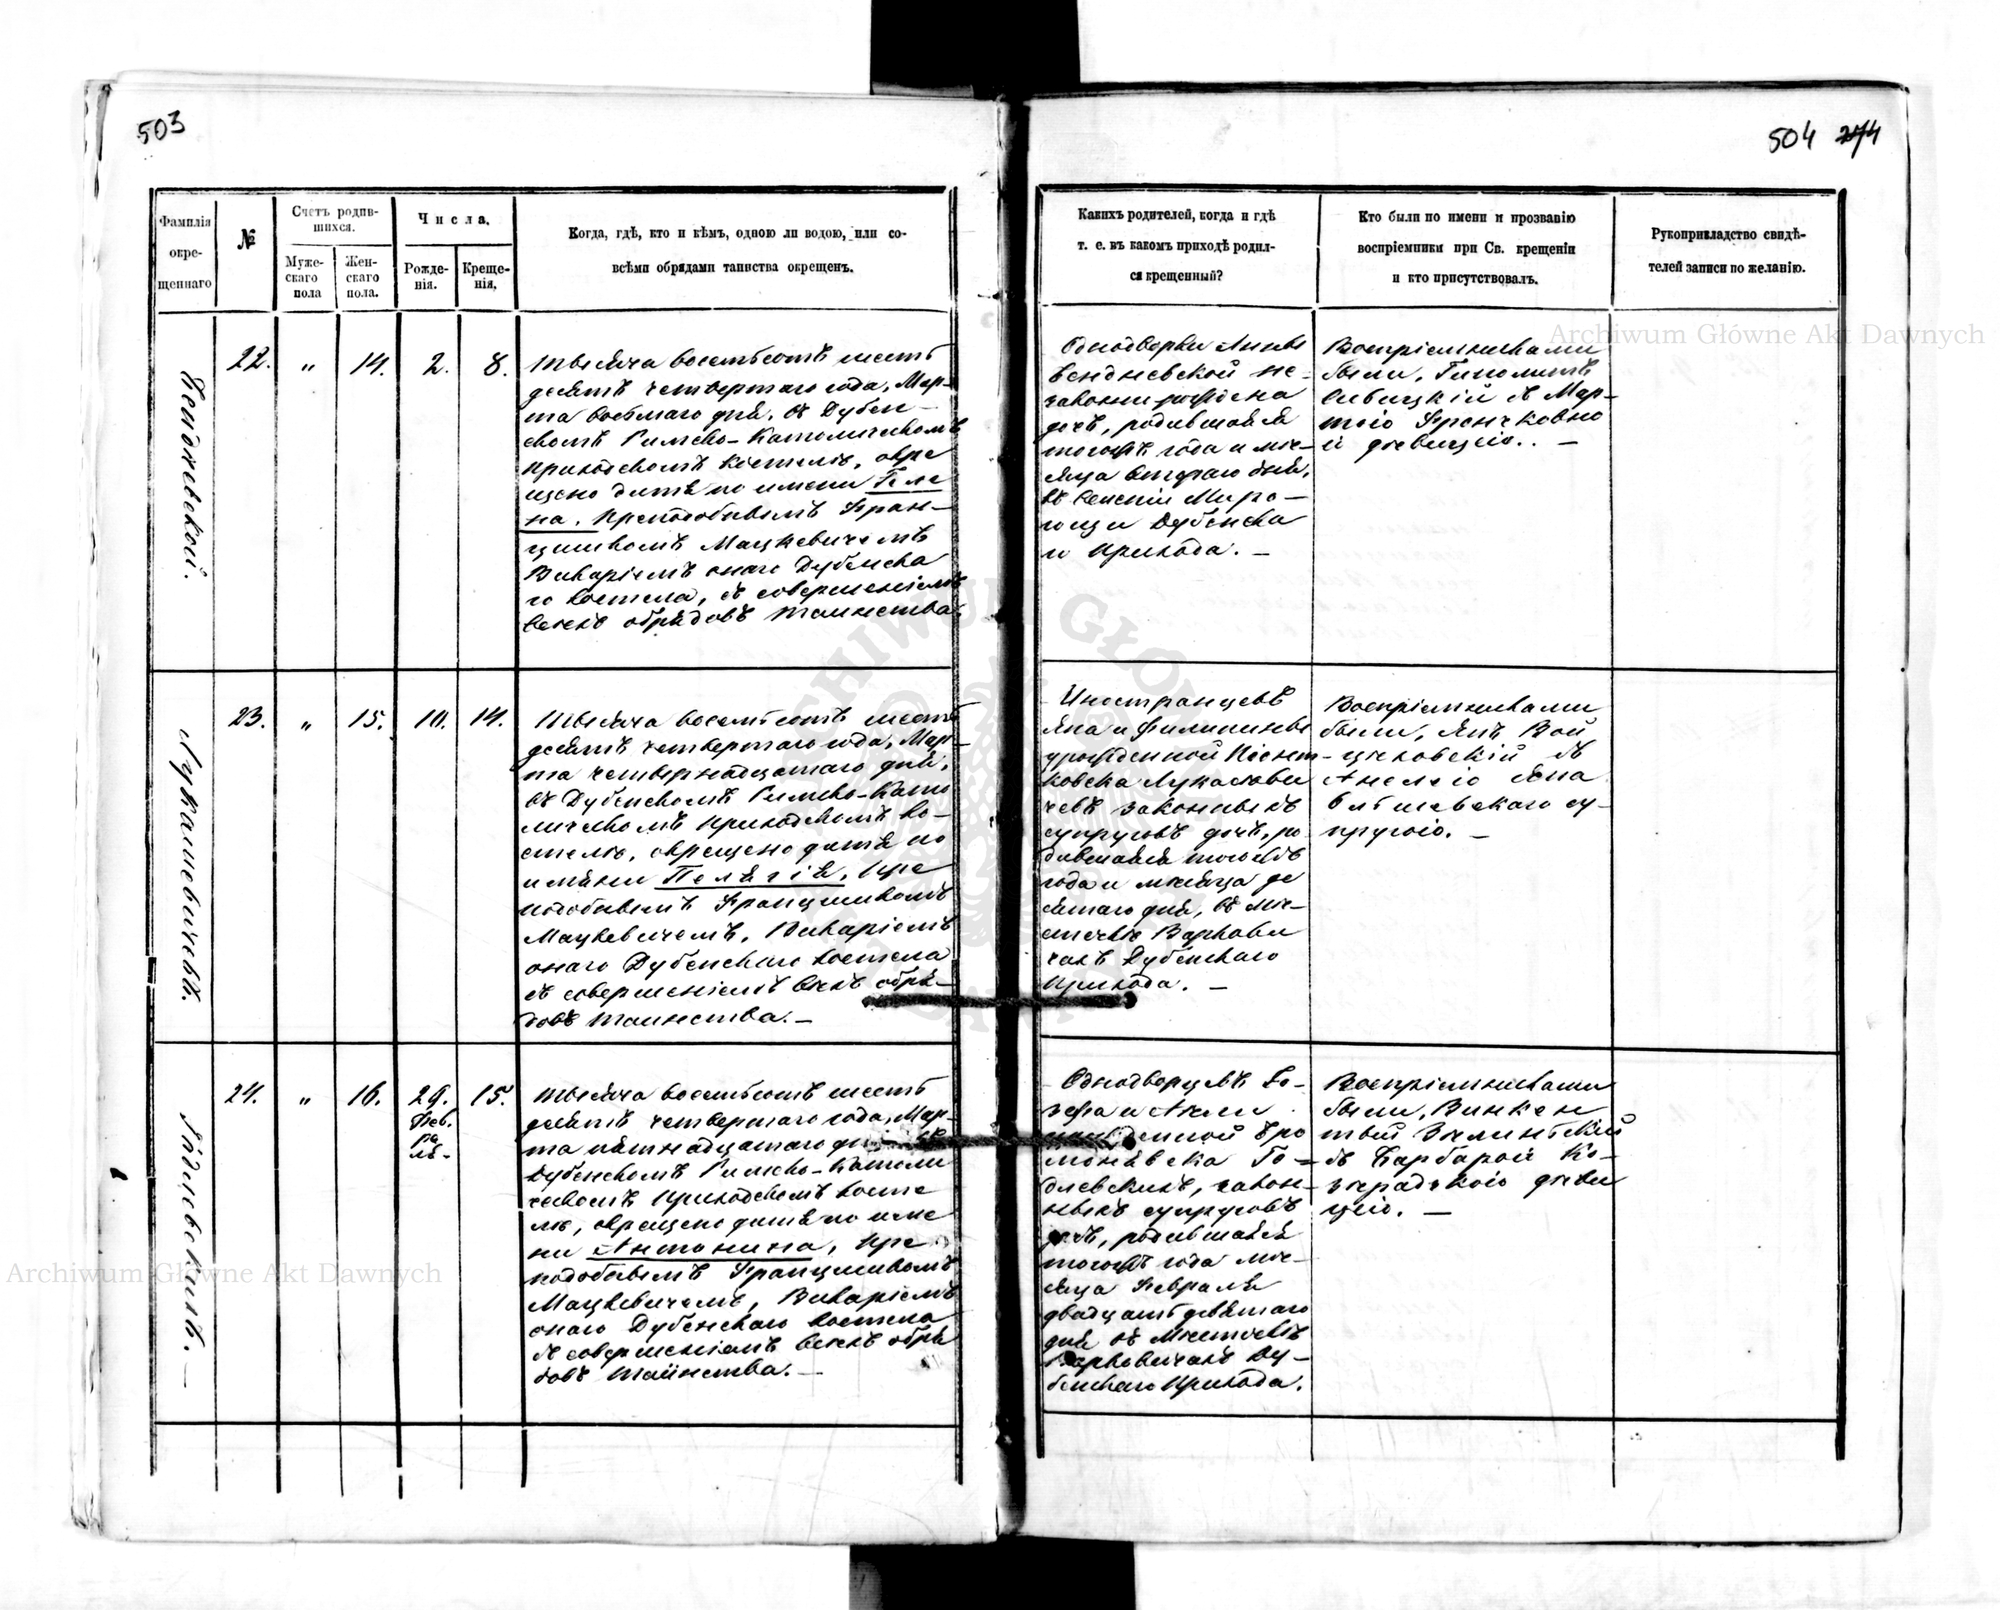 503
Фамилія
окре-
щеннаго
№
Счетъ родив-
шихся.
Муже-
скаго
пола
Жен-
скаго
пола.
Числа.
Рожде-
нія.
Креще-
нія.
Когда, гдѣ, кто и кѣмъ, одною ли водою, или со-
всѣми обрядами таинства окрещенъ.
22.
"
14.
2.
8.
Тысяча восемьсотъ шесть
десятъ четвертаго года, Мар-
та восьмаго дня, въ Дубен-
скомъ Римско-Католическомъ
приходскомъ костелѣ, окре
щено дитя по имени Геле
на, Преподобнымъ Фран-
цишкомъ Мацкевичемъ
Викаріемъ онаго Дубенска
го костела, съ совершеніемъ
всехъ обрядовъ таинства.
Лукашевичевъ.
23.
"
15.
10.
14.
Тысяча восемьсотъ шесть
десятъ четвертаго года, Мар-
та четырнадцатаго дня,
въ Дубенскомъ Римско-Като
лическомъ Приходскомъ ко-
стелѣ, окрещено дитя по
имени Пелягія, Пре
подобнымъ Францишкомъ
Мацкевичемъ, Викаріемъ
онаго Дубенскаго костела
съ совершеніемъ всехъ обря-
довъ таинства. —
24.
"
16.
29.
Фев.
ра
ль.
15.
Тысяча восемьсотъ шесть
десятъ четвертаго года, Мар-
та пятнадцатаго дня въ
Дубенскомъ Римско-Католи
ческомъ Приходскомъ косте
лѣ, окрещено дитя по име
ни Антонина, Пре
подобнымъ Францишкомъ
Мацкевичемъ, Викаріемъ
онаго Дубенскаго костела
съ совершеніемъ всехъ обря
довъ таинства. —
504 274
Какихъ родителей, когда и гдѣ
т. е. въ какомъ приходѣ родил-
ся крещенный?
Кто были по имени и прозванію
воспріемники при Св. крещеніи
и кто присутствовалъ.
Рукоприкладство свидѣ-
телей записи по желанію.
Однодворки
не-
дочь, родившаяся
тогожъ года и мѣ-
сяца втораго дня,
въ селеніи Миро-
гощи Дубенска
го Прихода. —
Воспріемниками
были, Гиполитъ
съ Мар-
тою
и девицею. —
Иностранцевъ
Яна и Филипины
урожденной
Лукашеви
чевъ законныхъ
супруговъ дочь, ро
дившаяся тогожъ
года и месяца де
сятаго дня, въ мѣ-
стечкѣ Варкови
чахъ Дубенскаго
Прихода. —
Воспріемниками
были, Янъ Вой
цеховскій съ
Анелею Яна
су-
пругою. —
Однодворцевъ Іо-
зефа и
урожденной
законн-
ныхъ супруговъ
дочь, родившаяся
тогожъ года мѣ-
сяца Февраля
двадцать девятаго
дня въ Мѣстечкѣ
Варковичахъ Ду-
бенскаго Прихода.
Воспріемниками
были, Викен
тій Зелинскій
съ Барбарой Ко-
деви
цею. —
Archiwum Główne Akt Dawnych
Archiwum Główne Akt Dawnych